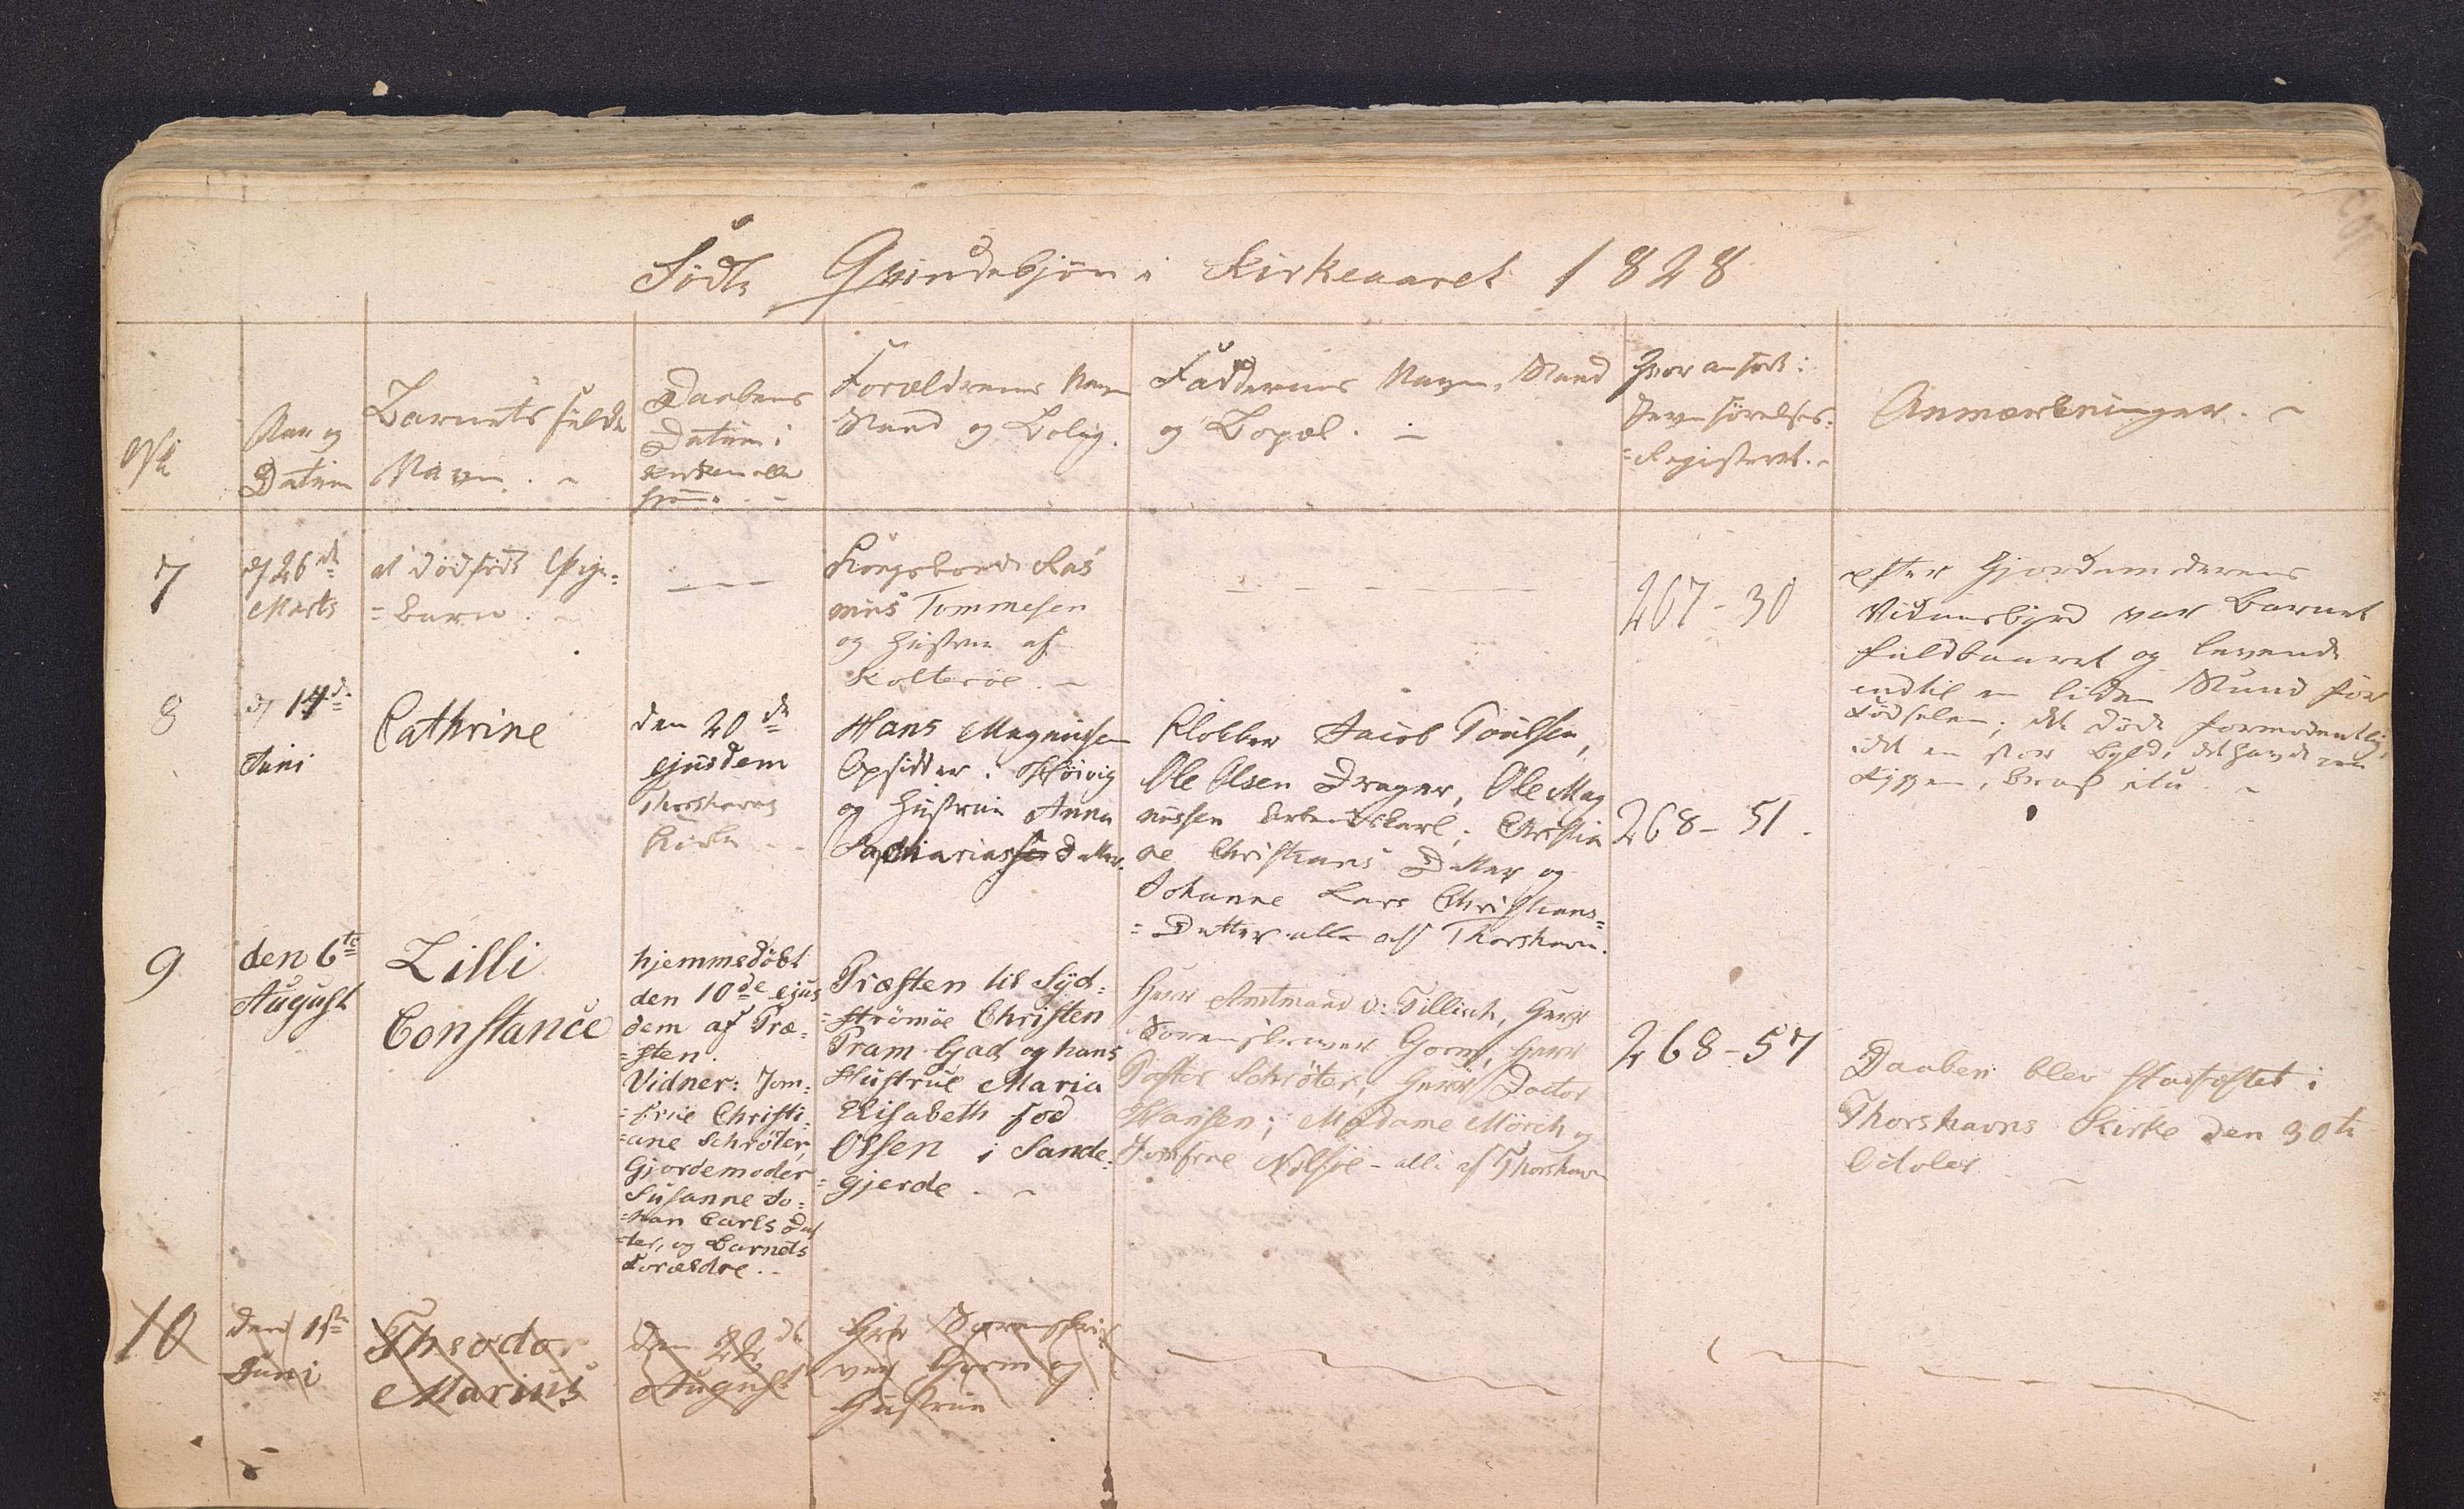 Födte Qvindekjön i Kirkeaaret 1828
No
Aar og
Datum
Barnets fulde
Navn. -
Daabens
Datum i
Kirken eller
Hjemme
Forældrenes Navn
Stand og Bolig.
Faddernes Navn, Stand
og Bopæl. -
Hvor anfört i
Jevnförelses-
=Registeret. -
Anmærkninger. -
7
d 26de
Marts
et dödfödt Pige-
=barn. -
Kongsbonde Ras
mus Tommesen
og Hustrue af
Kolteröe. -
267-30
efter Gjordemoderens
Vidnesbyrd var Barnet
fuldbaaret og levende
indtil en liden Stund för
Födselen; det döde formodentlig,
idet en stor Byld, det havde paa
Ryggen, brast itu. -
8
d 14de
Juni
Cathrine
den 20de
ejusdem
Thorshavns
Kirke -
Hans Magnusen
Opsidder i Höivig
og Hustrue Anna
Sachariasdatter.
Klokker Jacob Poulsen,
Ole Olsen Drager, Ole Mag
nussen Arbeidskarl; Christia
ne Christians Datter og
Johanne Lars Christians=
=Datter alle af Thorshavn.
268-51.
9
den 6te
August
Lilli
Constance
hjemmedöbt
den 10de ejus
dem af Præ=
=sten.
Vidner: Jom=
=frue Christi=
=ane Schröter,
Gjordemoder
Susanne Jo=
=han Carls Dat
=ter, og Barnets
Forældre. -
Præsten til Syd=
=strömöe Christen
Pram Gad og hans
Hustrue Maria
Elisabeth föd
Olsen i Sande=
=gjerde. -
Herr Amtmand v: Tillisch, Herr
Sorenskriver Gorm, Herr
Pastor Schröter, Herr Doctor
Hansen; Madame Mörch og
Jomfrue Nolsöe - alle af Thorshavn
268-57
Daaben blev stadfæstet i
Thorshavns Kirke den 30te
October -
10
den 1ste
Juni
Theodor
Marius
den 22de
August
Herr Sorenskri=
ver Gorm og
Hustrue